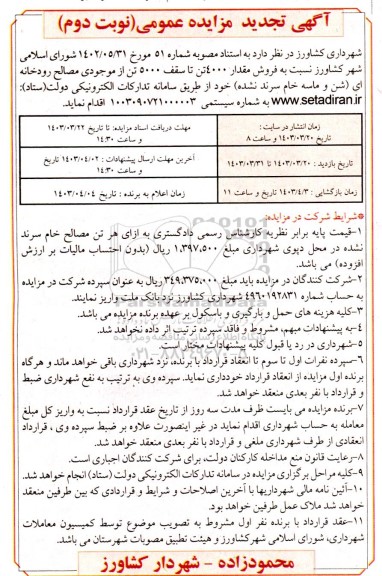 آگهی تجدید مزایده عمومی(نوبت دوم)
شهرداری کشاورز در نظر دارد به استناد مصوبه شماره ۵۱ مورخ ۱۴۰۲/۰۵/۳۱ شورای اسلامی
شهر کشاورز نسبت به فروش مقدار ۴۰۰۰تن تا سقف ۵۰۰۰ تن از موجودی مصالح رودخانه
ای (شن و ماسه خام سرند نشده) خود از طریق سامانه تدارکات الکترونیکی دولت(ستاد):
www.setadiran.ir به شماره سیستمی ۱۰۰۳۰۹۰۷۲۱۰۰۰۰۰۳ اقدام نماید.
زمان انتشار در سایت :
تاریخ ۱۴۰۳/۰۳/۲۰ و ساعت ۸
مهلت دریافت اسناد مزایده: تا تاریخ ۱۴۰۳/۰۳/۲۲
و ساعت ۱۴:۳۰
تاریخ بازدید : ۱۴۰۳/۰۳/۲۰ تا ۱۴۰۳/۰۳/۳۱
آخرین مهلت ارسال پیشنهادات : ۱۴۰۳/۰۴/۰۲ تاریخ
و ساعت ۱۴:۳۰
زمان بازگشایی : ۱۴۰۳/۴/۳ تاریخ و ساعت ۱۱
زمان اعلام به برنده : تاریخ ۱۴۰۳/۰۴/۰۴
*شرایط شرکت در مزایده:
۱-قیمت پایه برابر نظریه کارشناس رسمی دادگستری به ازای هر تن مصالح خام سرند
نشده در محل دپوی شهرداری مبلغ ۱.۳۹۷.۵۰۰ ریال (بدون احتساب مالیات بر ارزش
افزوده) می باشد.
۲-شرکت کنندگان در مزایده باید مبلغ ۳۴۹.۳۷۵.۰۰۰ ریال به عنوان سپرده شرکت در مزایده
به حساب شماره ۴۹۶۰۱۹۲۸۳۱ شهرداری کشاورز نزد بانک ملت واریز نمایند.
۳-کلیه هزینه های حمل و بارگیری و باسکول بر عهده برنده مزایده می باشد.
۴-به پیشنهادات مبهم، مشروط و فاقد سپرده ترتیب اثر داده نخواهد شد.
۵-شهرداری در رد یا قبول کلیه پیشنهادات مختار است.
۶-سپرده نفرات اول تا سوم تا انعقاد قرارداد با برنده، نزد شهرداری باقی خواهد ماند و هرگاه
برنده اول مزایده از انعقاد قرارداد خودداری نماید. سپرده وی به ترتیب به نفع شهرداری ضبط
و قرارداد با نفر بعدی منعقد خواهد شد.
۷-برنده مزایده می بایست ظرف مدت سه روز از تاریخ عقد قرارداد نسبت به واریز کل مبلغ
معامله به حساب شهرداری اقدام نماید در غیر اینصورت علاوه بر ضبط سپرده وی ، قرارداد
انعقادی از طرف شهرداری ملغی و قرارداد با نفر بعدی منعقد خواهد شد.
۸-رعایت قانون منع مداخله کارکنان دولت، برای شرکت کنندگان اجباری است.
۹-کلیه مراحل برگزاری مزایده در سامانه تدارکات الکترونیکی دولت (ستاد) انجام خواهد شد.
۱۰-آئین نامه مالی شهرداریها با آخرین اصلاحات و شرایط و قراردادی که بین طرفین منعقد
خواهد شد ملاک عمل طرفین خواهد بود.
۱۱-عقد قرارداد با برنده نفر اول مشروط به تصویب موضوع توسط کمیسیون معاملات
شهرداری، شورای اسلامی شهرکشاورز و هیئت تطبیق مصوبات شهرستان می باشد.
محمودزاده - شهردار کشاورز